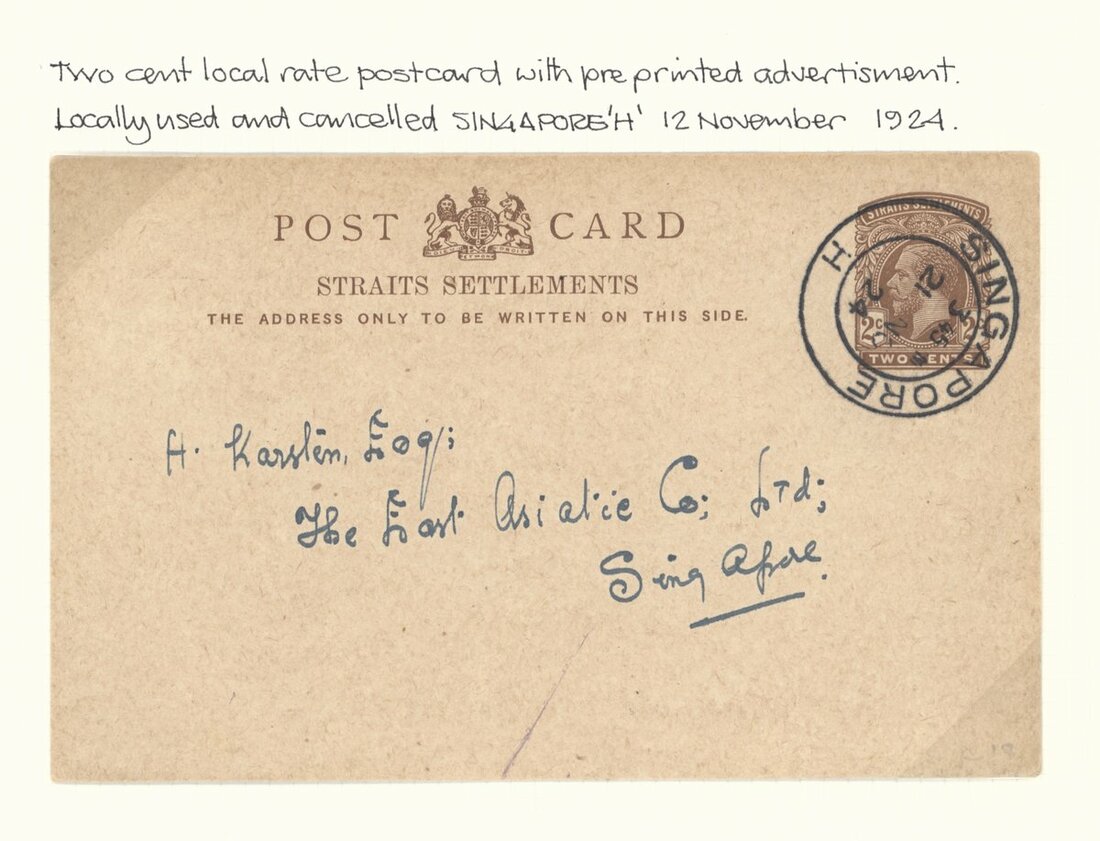 Two cent local rate postcard with pre printed advertisment.
Locally used and cancelled SINGAPORE 'H' 12 November 1924.
POST CARD
STRAITS SETTLEMENTS
THE ADDRESS ONLY TO BE WRITTEN ON THIS SIDE.
STRAITS SETTLEMENTS
2c 2c
TWO CENTS
SINGAPORE
H
3 45
NO
24
H. Karsten, Esq;
The East Asiatic Co; Ltd;
Singapore.